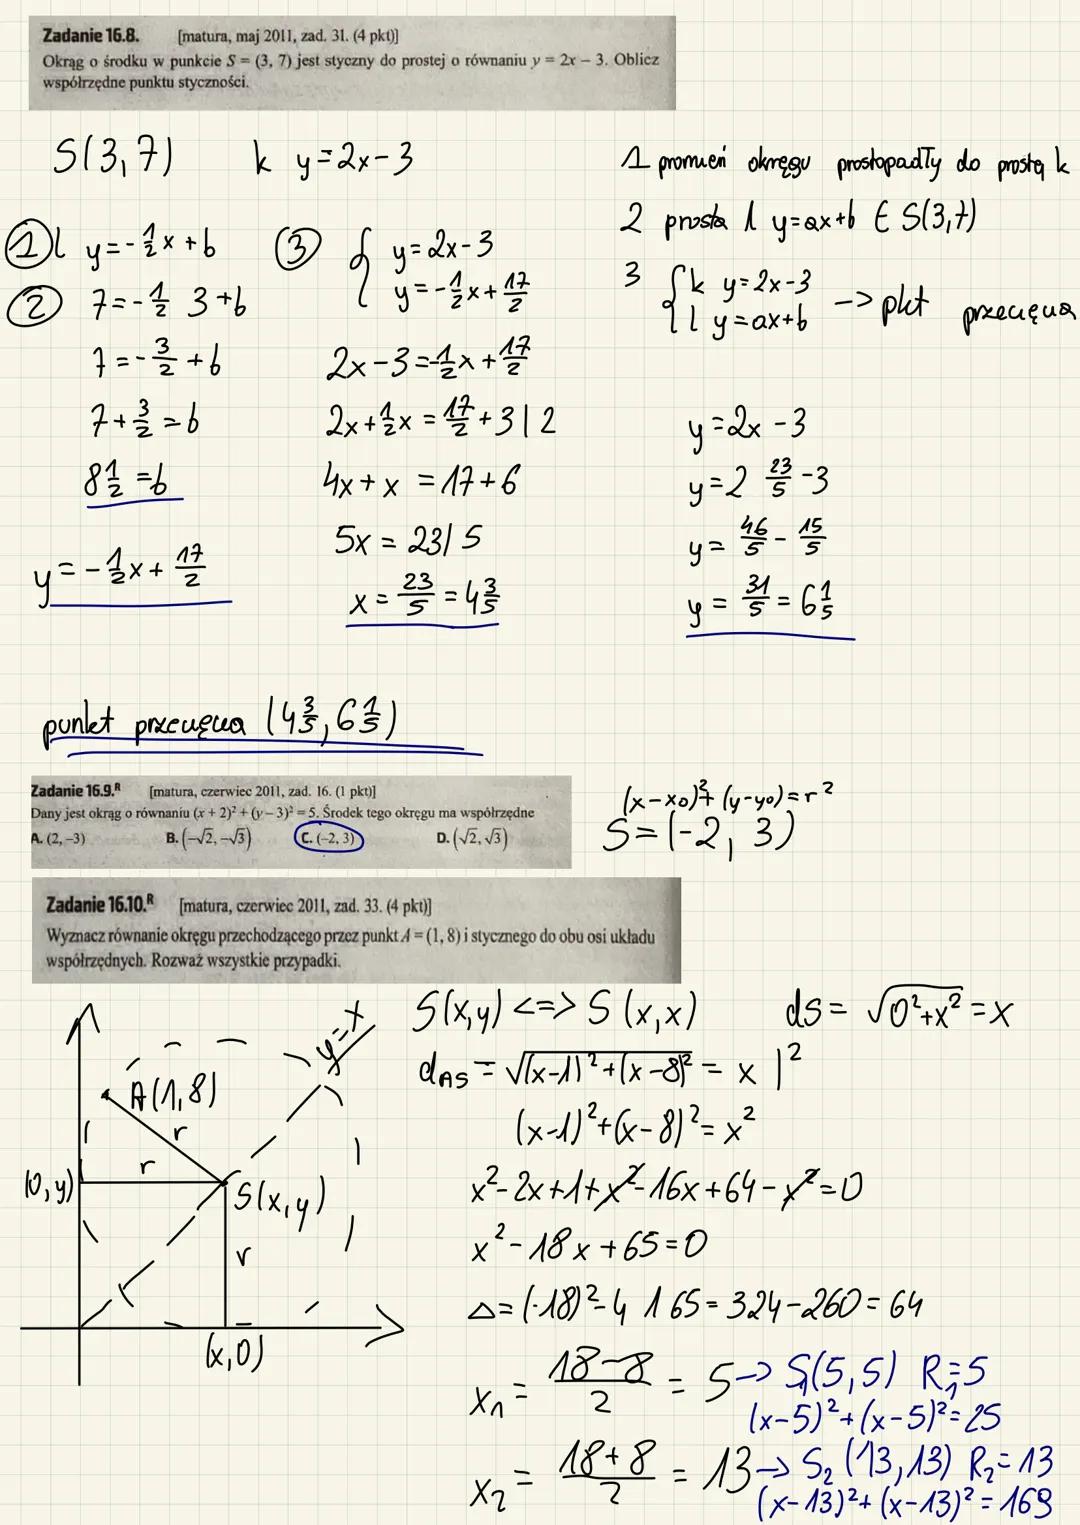 Zadanie 16.8. [matura, maj 2011, zad. 31. (4 pkt)]
Okrąg o środku w punkcie S = (3, 7) jest styczny do prostej o równaniu y = 2x – 3. Oblicz
współrzędne punktu styczności.
S(3,7) k y=2x-3
1 promień okręgu prostopadły do prostą k
2 prosta l y=ax+b ∈ S(3,7)
3 { k y=2x-3
l y=ax+b -> pkt przecięcia
① l y=-1/2x+b
② 7=-1/2 3+b
7=-3/2+b
7+3/2=b
8 1/2=b
y=-1/2x+17/2
③ { y=2x-3
y=-1/2x+17/2
2x-3=-1/2x+17/2
2x+1/2x=17/2+3 | 2
4x+x=17+6
5x=23 / 5
x=23/5=4 3/5
y=2x-3
y=2 23/5-3
y=46/5-15/5
y=31/5=6 1/5
punkt przecięcia (4 3/5, 6 1/5)
Zadanie 16.9.ᴿ [matura, czerwiec 2011, zad. 16. (1 pkt)]
Dany jest okrąg o równaniu (x + 2)² + (y – 3)² = 5. Środek tego okręgu ma współrzędne
A. (2, –3) B. (–√2, –√3) C. (–2, 3) D. (√2, √3)
(x-x₀)²+(y-y₀)=r²
S=(-2, 3)
Zadanie 16.10.ᴿ [matura, czerwiec 2011, zad. 33. (4 pkt)]
Wyznacz równanie okręgu przechodzącego przez punkt A = (1, 8) i stycznego do obu osi układu
współrzędnych. Rozważ wszystkie przypadki.
y=x
A(1,8)
r
r
(0,y)
S(x,y)
r
(x,0)
S(x,y) <=> S(x,x) dS=√0²+x²=x
dAS=√(x-1)²+(x-8)²=x |²
(x-1)²+(x-8)²=x²
x²-2x+1+x²-16x+64-x²=0
x²-18x+65=0
△=(-18)²-4 1 65=324-260=64
x₁=18-8/2=5 -> S₁(5,5) R₁=5
(x-5)²+(x-5)²=25
x₂=18+8/2=13 -> S₂(13,13) R₂=13
(x-13)²+(x-13)²=169